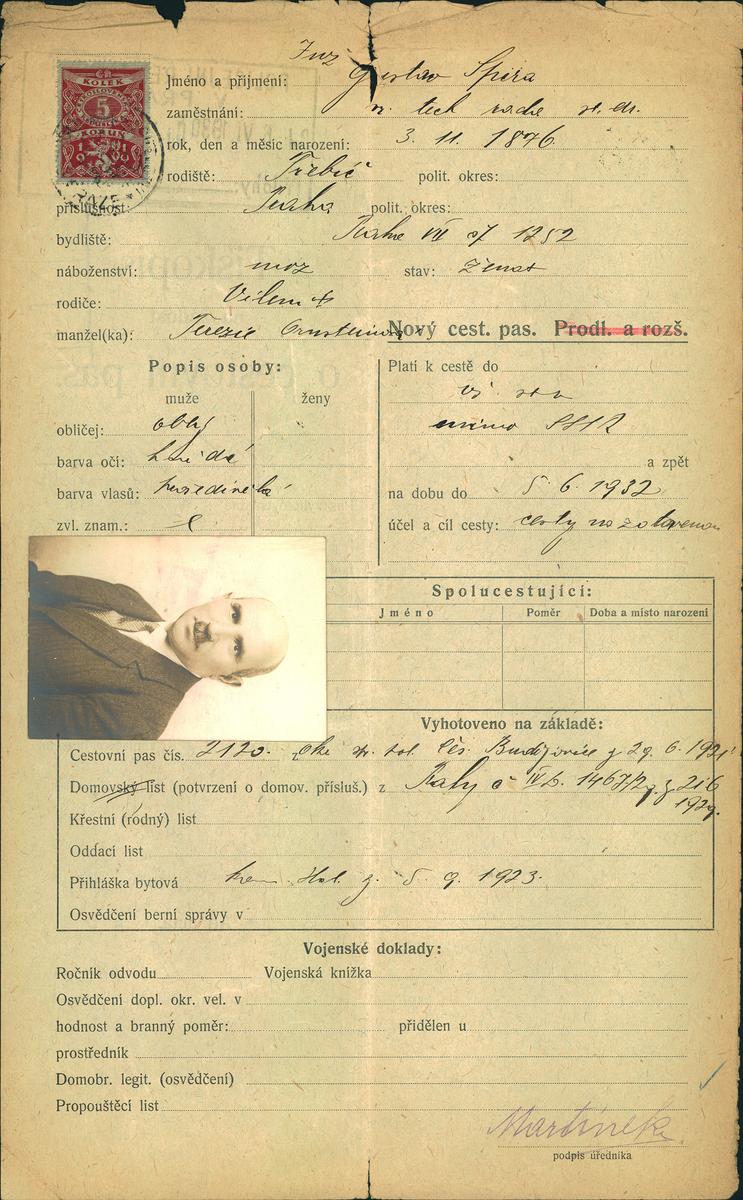 Ing
Jméno a příjmení: Gustav Spira
zaměstnání: v. tech rada st. dr.
rok, den a měsíc narození: 3. 11. 1876
rodiště: Třebíč polit. okres:
příslušnost: Praha polit. okres:
bydliště: Praha VII čp 1252
náboženství: moz stav: ženat
rodiče: Vilem
manžel(ka): Terezie
Nový cest. pas. Prodl. a rozš.
Popis osoby:
muže ženy
obličej: oblý
barva očí: hnědé
barva vlasů:
zvl. znam.:
Platí k cestě do
mimo SSSR
a zpět
na dobu do 5. 6. 1932
účel a cíl cesty: cesty na zotavenou
Spolucestující:
Jméno Poměr Doba a místo narození
Vyhotoveno na základě:
Cestovní pas čís. 2120. Čes. Budějovice z 29. 6. 1921
Domovský list (potvrzení o domov. přísluš.) z Prahy č IVb. 1467/29 z 21 6
1929.
Křestní (rodný) list
Oddací list
Přihláška bytová z. 5. 9. 1923.
Osvědčení berní správy v
Vojenské doklady:
Ročník odvodu Vojenská knížka
Osvědčení dopl. okr. vel. v
hodnost a branný poměr: přidělen u
prostředník
Domobr. legit. (osvědčení)
Propouštěcí list
Martínek
podpis úředníka
KOLEK
5
KORUN